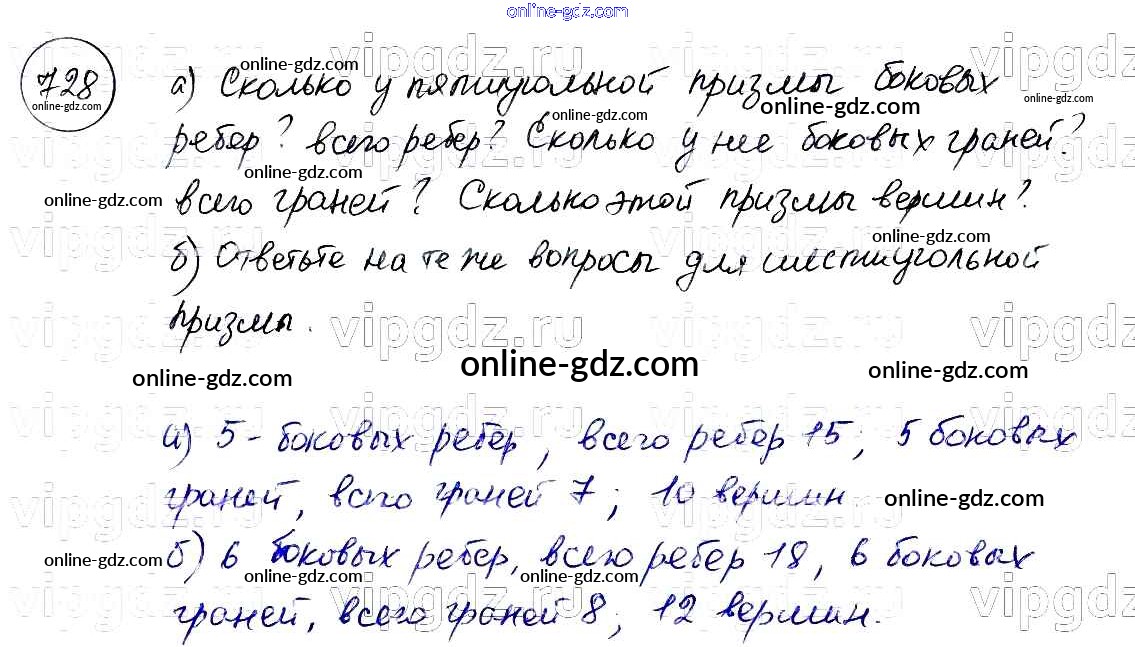 online-gdz.com
728
а) Сколько у пятиугольной призмы боковых
ребер? всего ребер? Сколько у нее боковых граней?
всего граней? Сколько этой призмы вершин?
б) Ответьте на те же вопросы для шестиугольной
призмы.
online-gdz.com
а) 5 - боковых ребер, всего ребер 15; 5 боковых
граней, всего граней 7; 10 вершин.
б) 6 боковых ребер, всего ребер 18, 6 боковых
граней, всего граней 8; 12 вершин.
vipgdz.ru